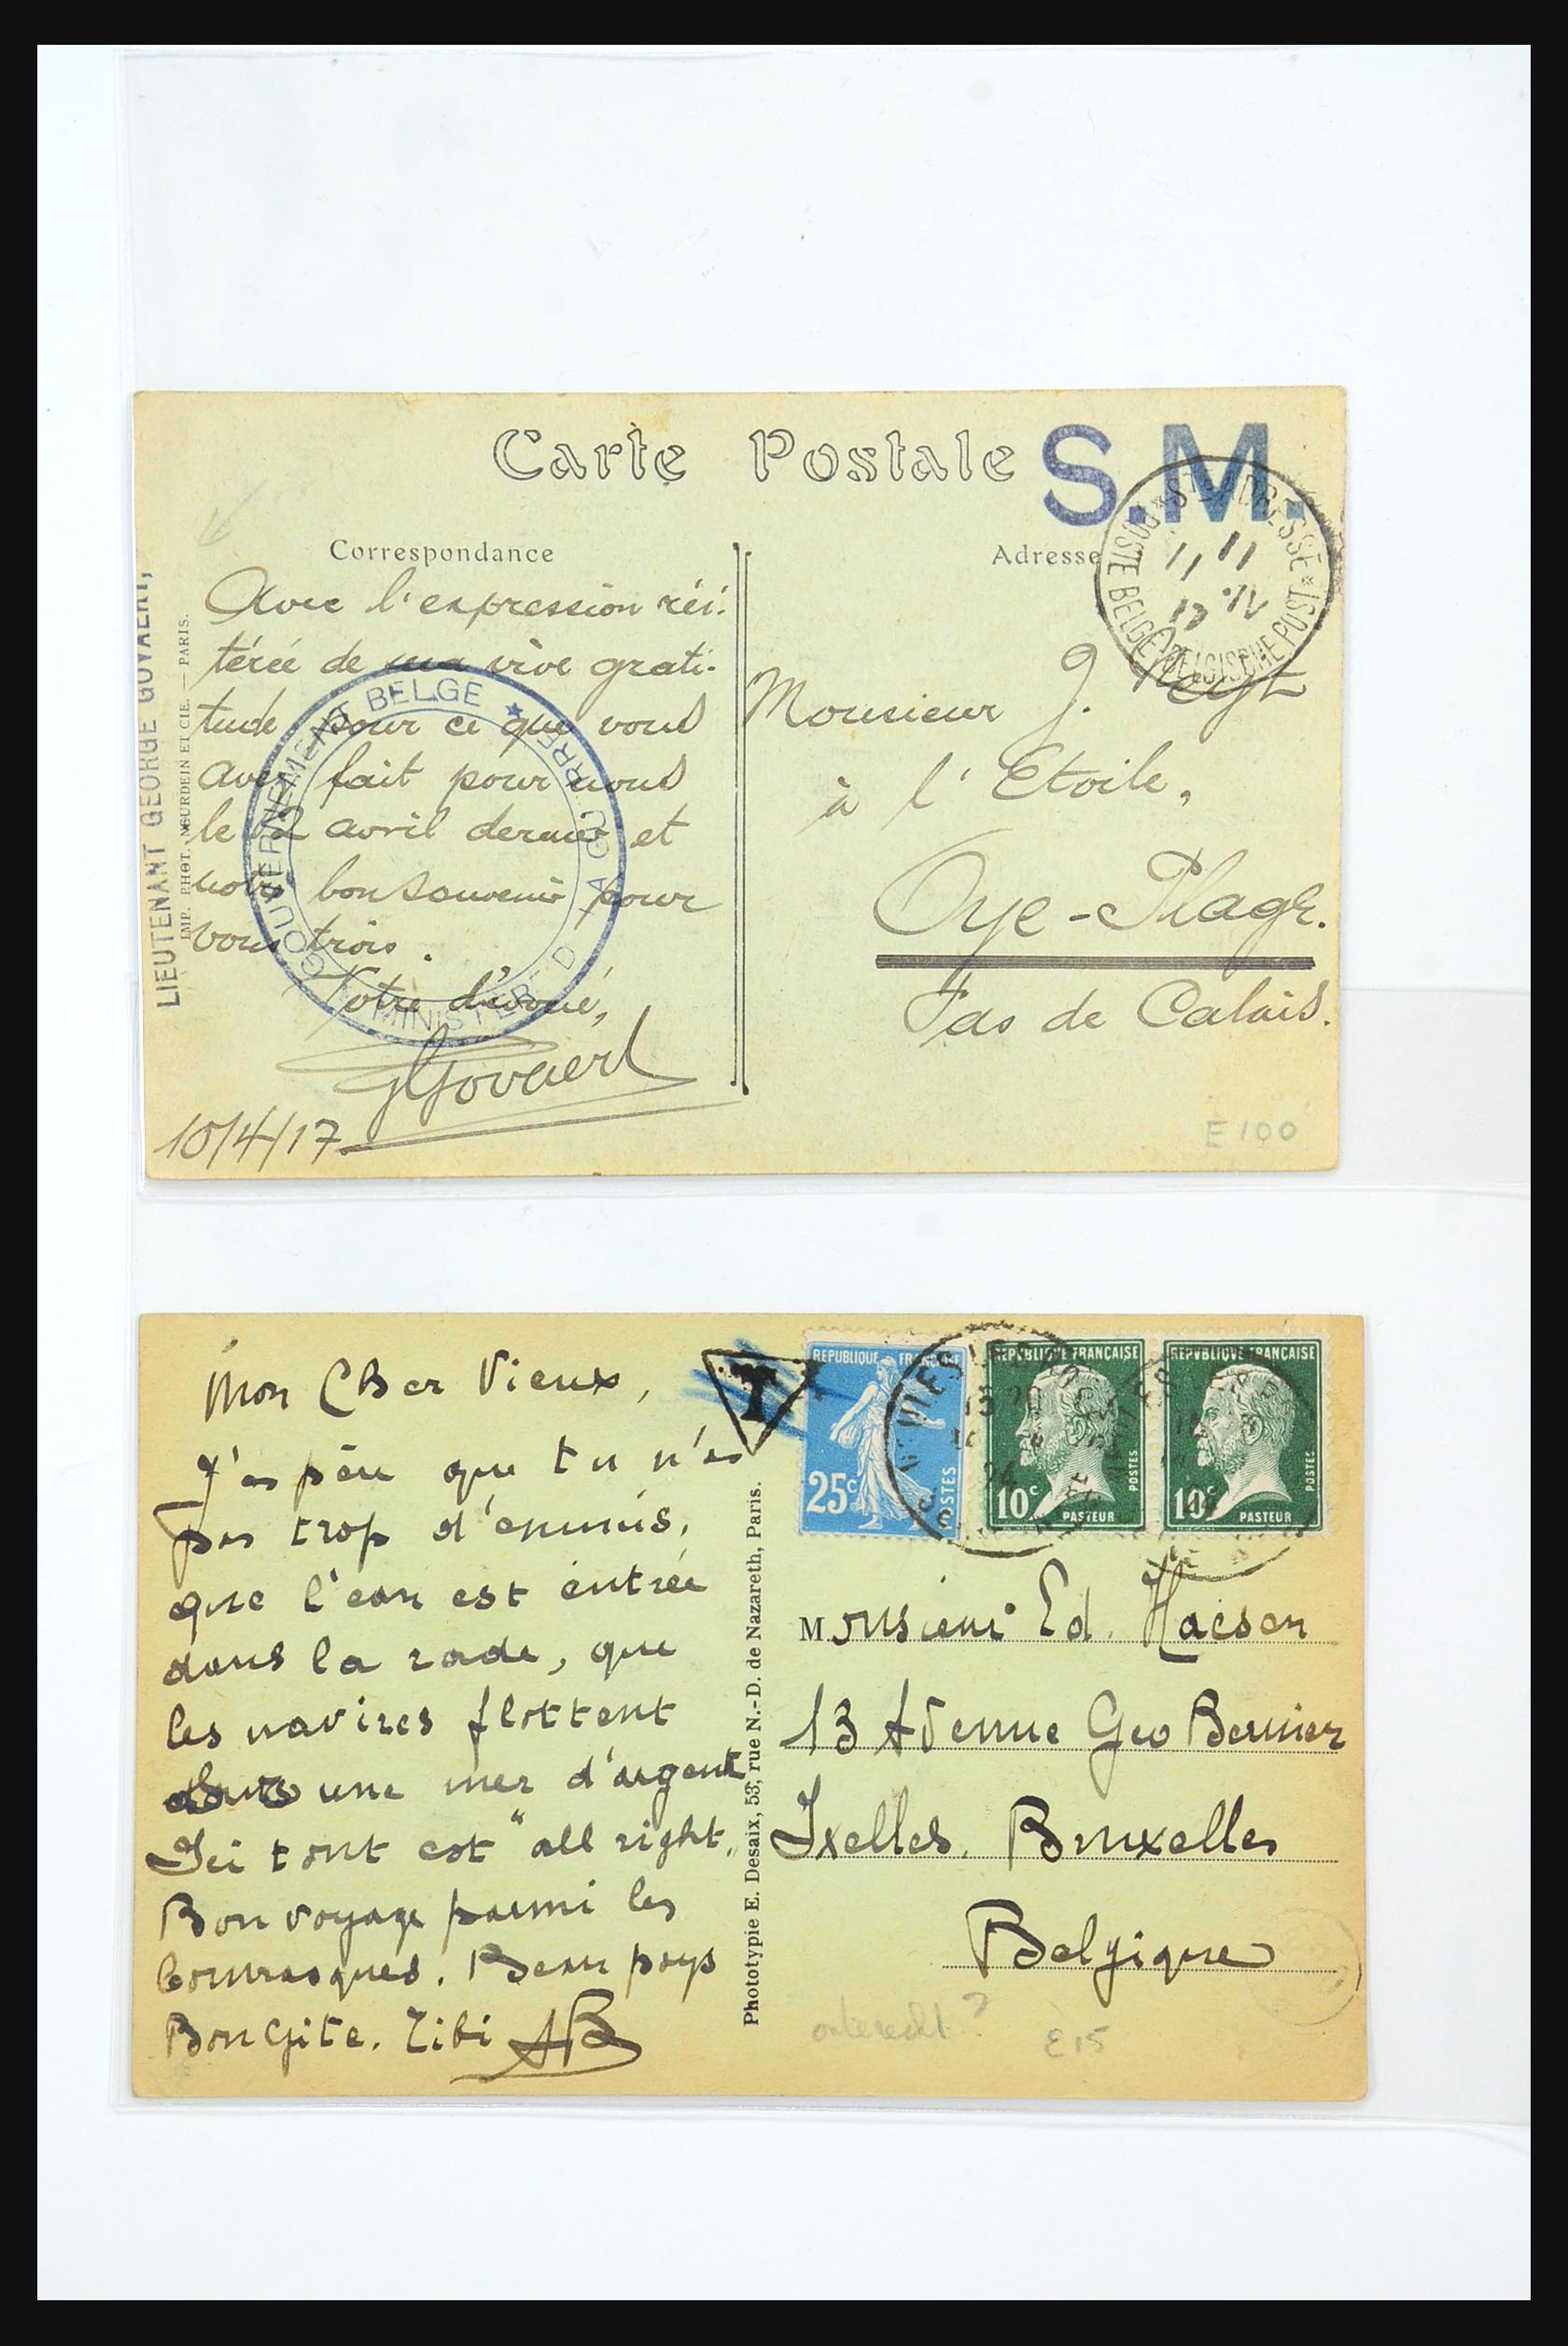 Carte Postale
S.M.
Correspondance
Adresse
STE ADRESSE
POSTE BELGE BELGISCHE POST
11 11
IV
17
LIEUTENANT GEORGE GOVAERT,
IMP. PHOT. NEURDEIN ET CIE. — PARIS.
Avec l'expression réi-
térée de ma vive grati-
tude pour ce que vous
avez fait pour nous
le 2 avril dernier et
notre bon souvenir pour
vous trois.
Votre dévoué,
GGovaert
10/4/17
GOUVERNEMENT BELGE ★
MINISTÈRE D LA GUERRE
Monsieur J.
à l'Etoile,
Oye-Plage.
Pas de Calais.
E 100
Mon Cher Vieux,
J'espère que tu n'as
pas trop d'ennuis,
que l'eau est entrée
dans la rade, que
les navires flottent
dans une mer d'argent
Ici tout est "all right"
Bon voyage parmi les
bourrasques. Beau pays
Bon gite. Titi AB
T
REPUBLIQUE FRANÇAISE
25c
POSTES
REPVBLIQVE FRANÇAISE
10c
POSTES
PASTEUR
REPVBLIQVE FRANÇAISE
10c
POSTES
PASTEUR
Phototypie E. Desaix, 53, rue N.-D. de Nazareth, Paris.
Monsieur Ed. Haesen
13 Avenue Geo Bernier
Ixelles. Bruxelles
Belgique
onterecht?
E15